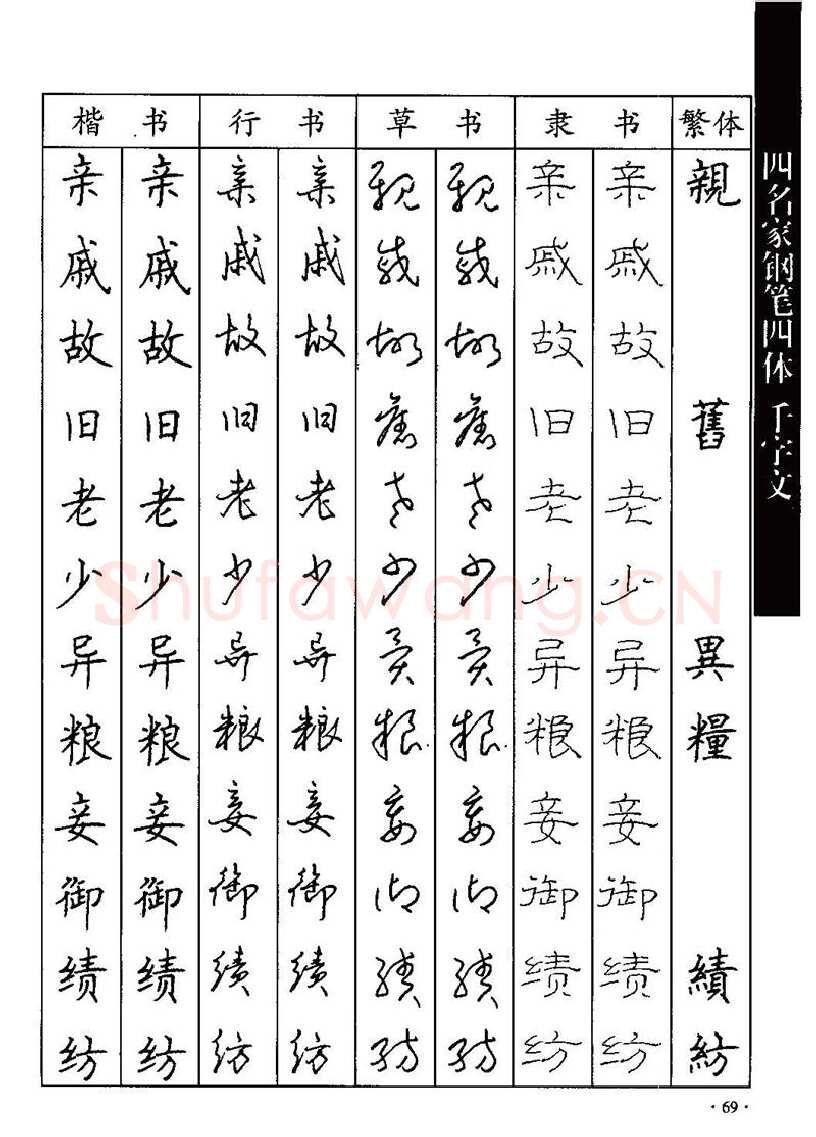 楷书 行书 草书 隶书 繁体
亲 亲 亲 亲 親 親 亲 亲 親
戚 戚 戚 戚 戚 戚 戚 戚
故 故 故 故 故 故 故 故
旧 旧 旧 旧 舊 舊 旧 旧 舊
老 老 老 老 老 老 老 老
少 少 少 少 少 少 少 少
异 异 异 异 異 異 异 异 異
粮 粮 粮 粮 粮 粮 粮 粮 糧
妾 妾 妾 妾 妾 妾 妾 妾
御 御 御 御 御 御 御 御
绩 绩 绩 绩 績 績 绩 绩 績
纺 纺 纺 纺 紡 紡 纺 纺 紡
四名家钢笔四体 千字文
Shufawang.CN
·69·